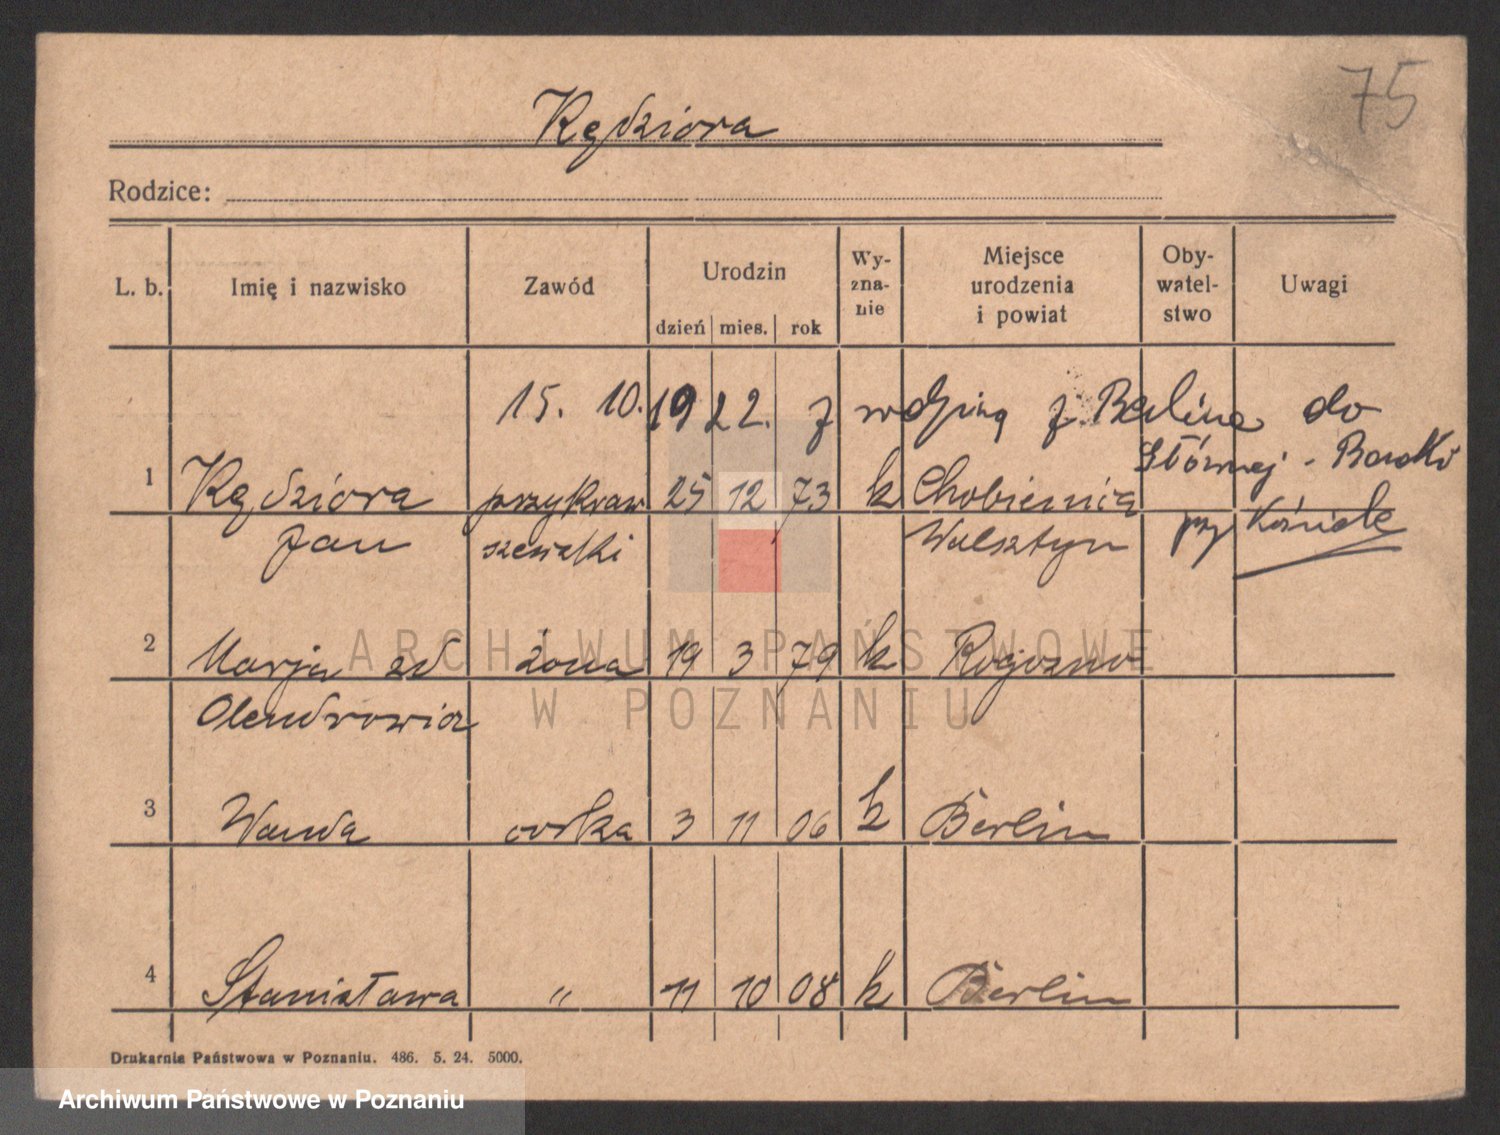 75
Kędziora
Rodzice:
L. b. Imię i nazwisko Zawód Urodzin dzień mies. rok Wy-zna-nie Miejsce urodzenia i powiat Oby-watel-stwo Uwagi
15. 10. 1922. z rodziną z Berlina do
Głównej - Baraki
przy Kościele
1 Kędziora przykraw 25 12 73 k Chobienia
Jan szewski Wolsztyn
2 Marja zd żona 19 3 79 k Rogozno
Olendrowicz
3 Wanda córka 3 11 06 k Berlin
4 Stanisława " 11 10 08 k Berlin
Drukarnia Państwowa w Poznaniu. 486. 5. 24. 5000.
ARCHIWUM PAŃSTWOWE
W POZNANIU
Archiwum Państwowe w Poznaniu